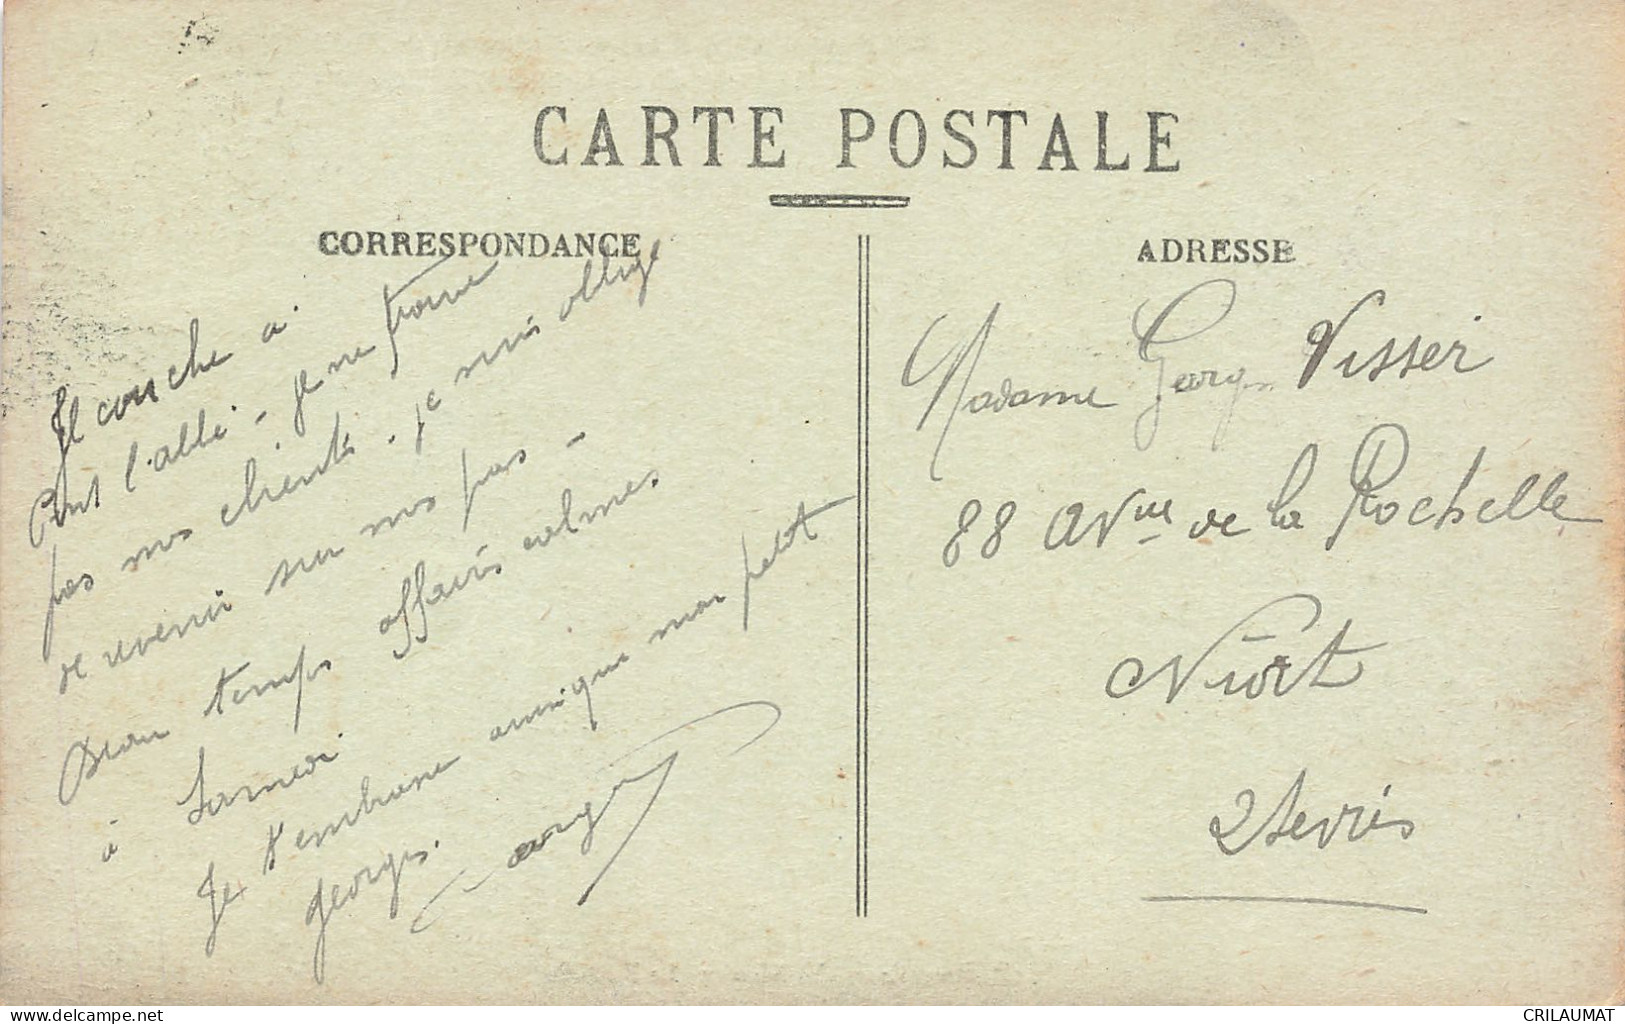 CARTE POSTALE
CORRESPONDANCE
ADRESSE
Je couche à
Pont l'abbé - je ne trouve
pas mos clients. je suis obligé
de revenir sur mes pas -
Beau temps affaires calmes
à Samedi
Je t'embrasse ainsi que mon petit
Georges.
Madame Georges Visser
88 Avue de la Rochelle
Niort
2 Sevres
www.delcampe.net
CRILAUMAT